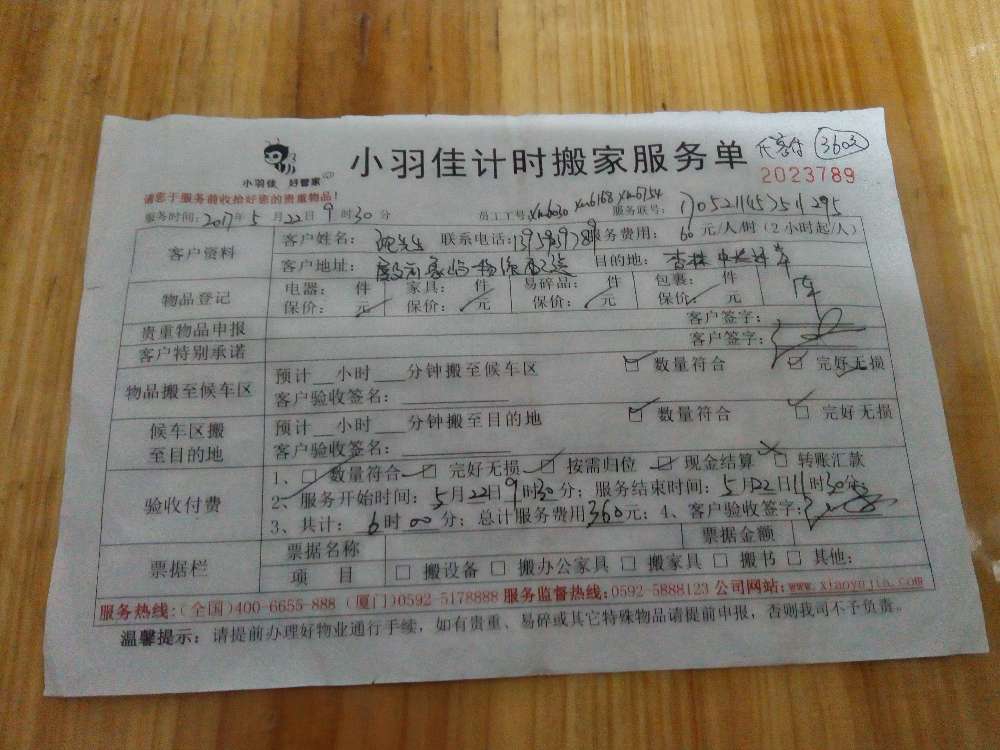 小羽佳 好管家
小羽佳计时搬家服务单
3603
2023789
请您于服务前收拾好您的贵重物品!
服务时间: 2017年 5月 22日 9时 30分 员工工号: xm6030 xm6168 xm6754 服务联号:
客户资料
客户姓名: 先生 联系电话: 服务费用: 60元/人/时 (2小时起/人)
客户地址: 目的地: 杏林
物品登记
电器: 件 家具: 件 易碎品: 件 包裹: 件
保价: 元 保价: 元 保价: 元 保价: 元
贵重物品申报 客户签字:
客户特别承诺 客户签字:
物品搬至候车区
预计__小时___分钟搬至候车区 ☑ 数量符合 ☑ 完好无损
客户验收签名:
候车区搬至目的地
预计__小时___分钟搬至目的地 ☑ 数量符合 ☑ 完好无损
客户验收签名:
验收付费
1、□ 数量符合 □ 完好无损 □ 按需归位 □ 现金结算 □ 转账汇款
2、服务开始时间: 5月22日9时30分; 服务结束时间: 5月22日11时30分
3、共计: 6时00分; 总计服务费用360元; 4、客户验收签字:
票据栏
票据名称 票据金额
项 目 □ 搬设备 □ 搬办公家具 □ 搬家具 □ 搬书 □ 其他:
服务热线:(全国)400-6655-888 (厦门)0592-5178888 服务监督热线:0592-5888123 公司网站:www.xiaoyujia.com
温馨提示: 请提前办理好物业通行手续, 如有贵重、易碎或其它特殊物品请提前申报, 否则我司不予负责。